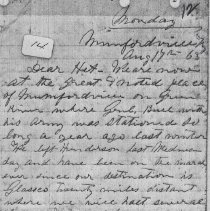 Monday
Munfordville
Aug 17th 63
141
Dear Het - We are now
at the Great & noted place
of Munfordville on Green
River where Genl. Buel with
his Army was stationed so
long a year ago last winter
We left Henderson last Wednes
day and have been on the march
ever since our destination is
Glasco Twenty miles distant
where we will halt several